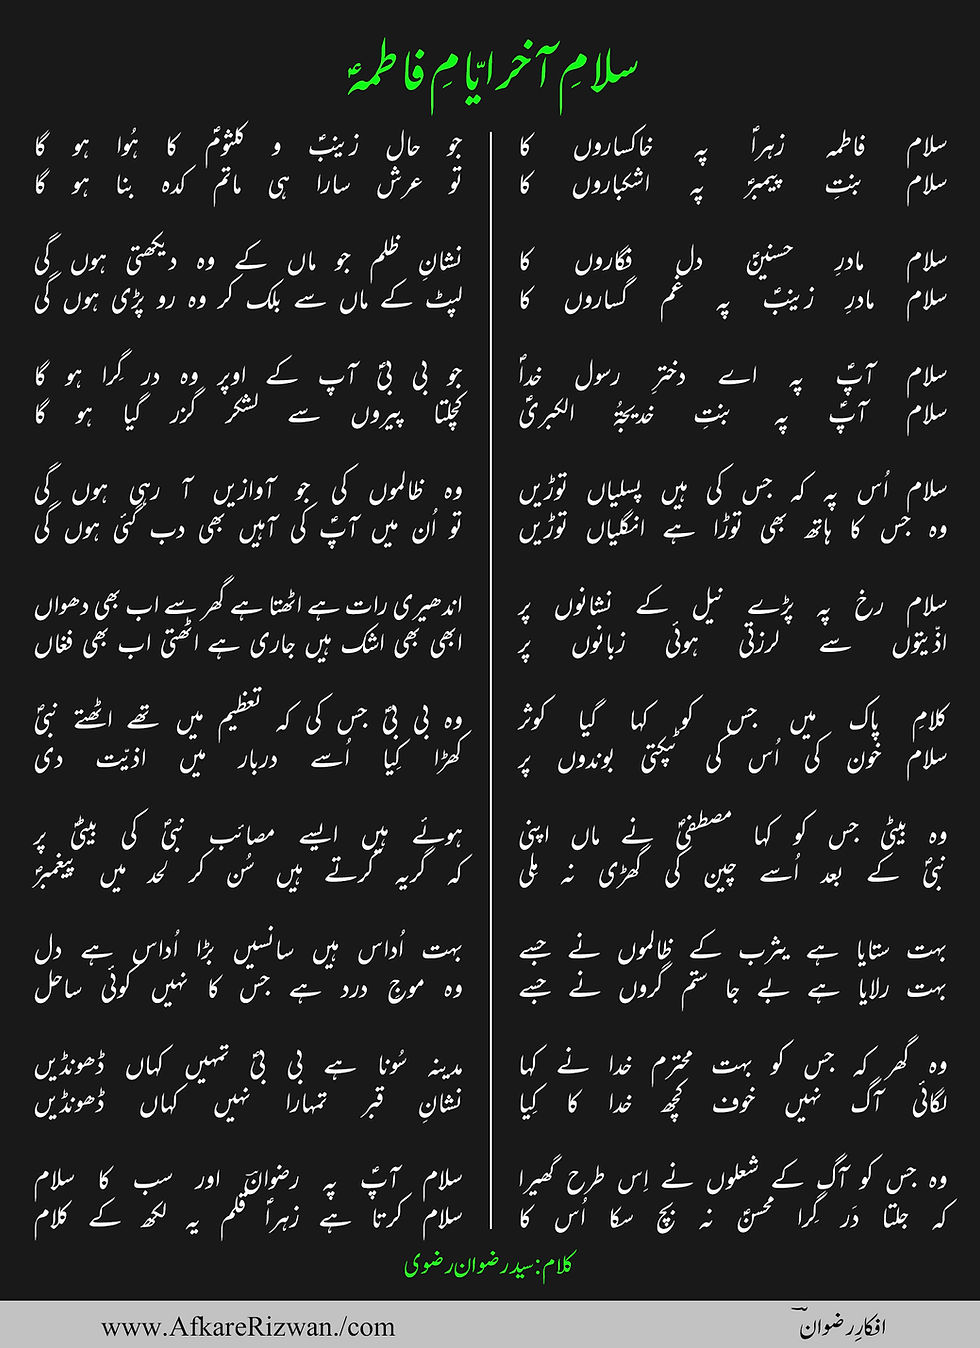 سلامِ آخر ایّامِ فاطمہؑ
سلام فاطمہ زہراؑ پہ خاکساروں کا
سلام بنتِ پیمبرؐ پہ اشکباروں کا
سلام مادرِ حسنینؑ دل فگاروں کا
سلام مادرِ زینبؑ پہ غم گساروں کا
سلام آپؑ پہ اے دخترِ رسول خداؐ
سلام آپؑ پہ بنتِ خدیجۃُ الکبریٰؑ
سلام اُس پہ کہ جس کی ہیں پسلیاں توڑیں
وہ جس کا ہاتھ بھی توڑا ہے انگلیاں توڑیں
سلام رخ پہ پڑے نیل کے نشانوں پر
اذیّتوں سے لرزتی ہوئی زبانوں پر
کلامِ پاک میں جس کو کہا گیا کوثر
سلام خون کی اُس کی ٹپکتی بوندوں پر
وہ بیٹی جس کو کہا مصطفیٰؐ نے ماں اپنی
نبیؐ کے بعد اُسے چین کی گھڑی نہ ملی
بہت ستایا ہے یثرب کے ظالموں نے جسے
بہت رلایا ہے بے جا ستم گروں نے جسے
وہ گھر کہ جس کو بہت محترم خدا نے کہا
لگائی آگ نہیں خوف کچھ خدا کا کِیا
وہ جس کو آگ کے شعلوں نے اِس طرح گھیرا
کہ جلتا دَر گِرا محسنؑ نہ بچ سکا اُس کا
جو حال زینبؑ و کلثومؑ کا ہُوا ہو گا
تو عرش سارا ہی ماتم کدہ بنا ہو گا
نشانِ ظلم جو ماں کے وہ دیکھتی ہوں گی
لپٹ کے ماں سے بلک کر وہ رو پڑی ہوں گی
جو بی بیؑ آپ کے اوپر وہ در گِرا ہو گا
کچلتا پیروں سے لشکر گزر گیا ہو گا
وہ ظالموں کی جو آوازیں آ رہی ہوں گی
تو اُن میں آپؑ کی آہیں بھی دب گئی ہوں گی
اندھیری رات ہے اٹھتا ہے گھر سے اب بھی دھواں
ابھی بھی اشک ہیں جاری ہے اٹھتی اب بھی فغاں
وہ بی بیؑ جس کی کہ تعظیم میں تھے اٹھتے نبیؐ
کھڑا کِیا اُسے دربار میں اذیّت دی
ہوئے ہیں ایسے مصائب نبیؐ کی بیٹیؑ پر
کہ گریہ کرتے ہیں سُن کر لحد میں پیغمبرؐ
بہت اُداس ہیں سانسیں بڑا اُداس ہے دل
وہ موجِ درد ہے جس کا نہیں کوئی ساحل
مدینہ سُونا ہے بی بیؑ تمہیں کہاں ڈھونڈیں
نشانِ قبر تمہارا نہیں کہاں ڈھونڈیں
سلام آپؑ پہ رضوانؔ اور سب کا سلام
سلام کرتا ہے زہراؑ قلم یہ لکھ کے کلام
کلام: سید رضوان رضوی
www.AfkareRizwan./com
افکارِ رضوانؔ